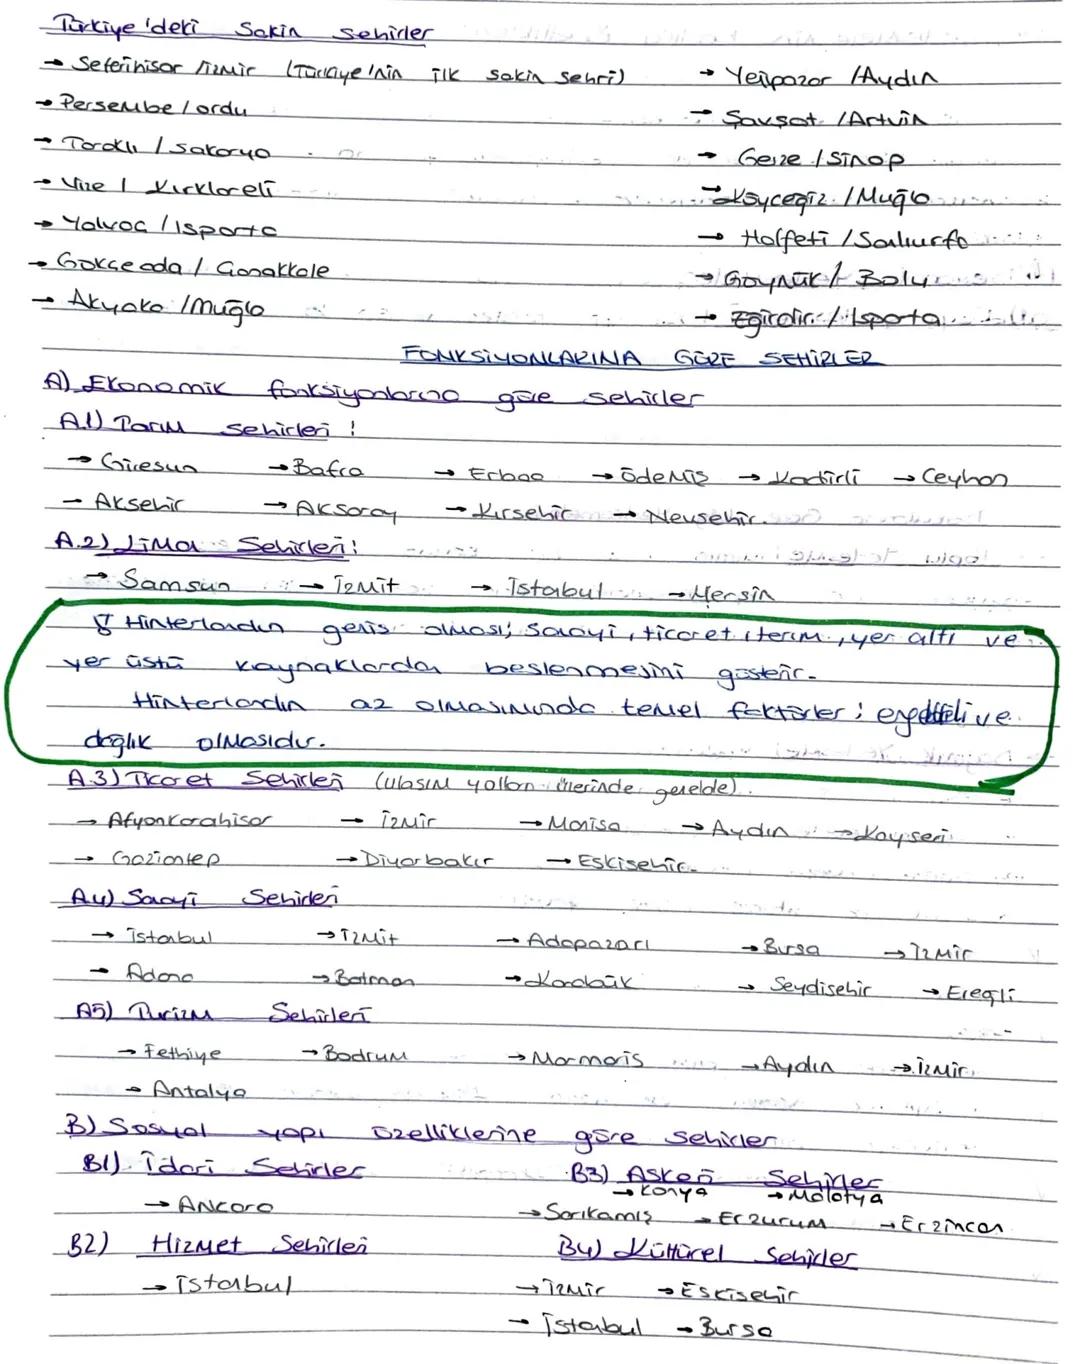 Türkiye'deki Sakin şehirler
→ Seferihisar / İzmir (Türkiye'nin ilk sakin şehri)
→ Perşembe / ordu
→ Taraklı / sakarya
→ Vize / Kırklareli
→ Yalvaç / Isparta
→ Gökçeada / Çanakkale
→ Akyaka / Muğla
→ Yenipazar / Aydın
→ Şavşat / Artvin
→ Gerze / Sinop
→ Köyceğiz / Muğla
→ Halfeti / Şanlıurfa
→ Göynük / Bolu
→ Eğirdir / Isparta
FONKSİYONLARINA GÖRE ŞEHİRLER
A) Ekonomik fonksiyonlarına göre şehirler
A.1) Tarım şehirleri :
→ Giresun → Bafra → Erbaa → Ödemiş → Kadirli → Ceyhan
→ Akşehir → Aksaray → Kırşehir → Nevşehir.
A.2) Liman Şehirleri :
→ Samsun → İzmit → İstanbul → Mersin
Hinterlandın geniş olması; sanayi, ticaret, tarım, yer altı ve
yer üstü kaynaklardan beslenmesini gösterir.
Hinterlandın az olmasınında temel faktörler ; engebeli ve
dağlık olmasıdır.
A.3) Ticaret Şehirleri (ulaşım yolları üzerinde genelde).
→ Afyonkarahisar → İzmir → Manisa → Aydın → Kayseri
→ Gaziantep → Diyarbakır → Eskişehir.
A4) Sanayi Şehirleri
→ İstanbul → İzmit → Adapazarı → Bursa → İzmir
→ Adana → Batman → Karabük → Seydişehir → Ereğli
A5) Turizm Şehirleri
→ Fethiye → Bodrum → Marmaris → Aydın → İzmir
→ Antalya
B) Sosyal yapı özelliklerine göre şehirler
B1) İdari Şehirler
→ Ankara
B2) Hizmet Şehirleri
→ İstanbul
B3) Askeri Şehirler
→ Konya → Malatya
→ Sarıkamış → Erzurum → Erzincan
B4) Kültürel Şehirler
→ İzmir → Eskişehir
→ İstanbul → Bursa